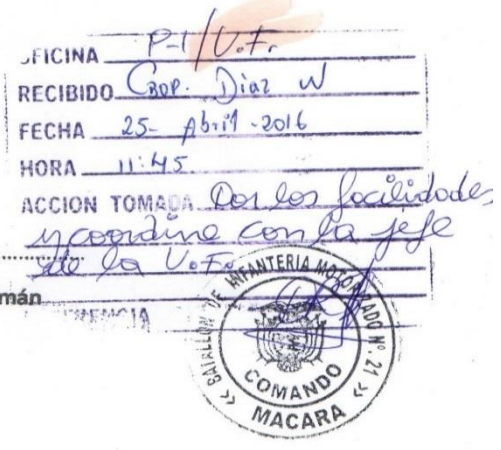 OFICINA P-1/U.F.
RECIBIDO CBOP. Diaz W
FECHA 25- Abril -2016
HORA 11:45
ACCION TOMADA Dar las facilidades
y coordine con la jefe
de la U.F.
mán
BATALLON DE INFANTERIA MOTORIZADO Nº. 21
COMANDO
MACARA